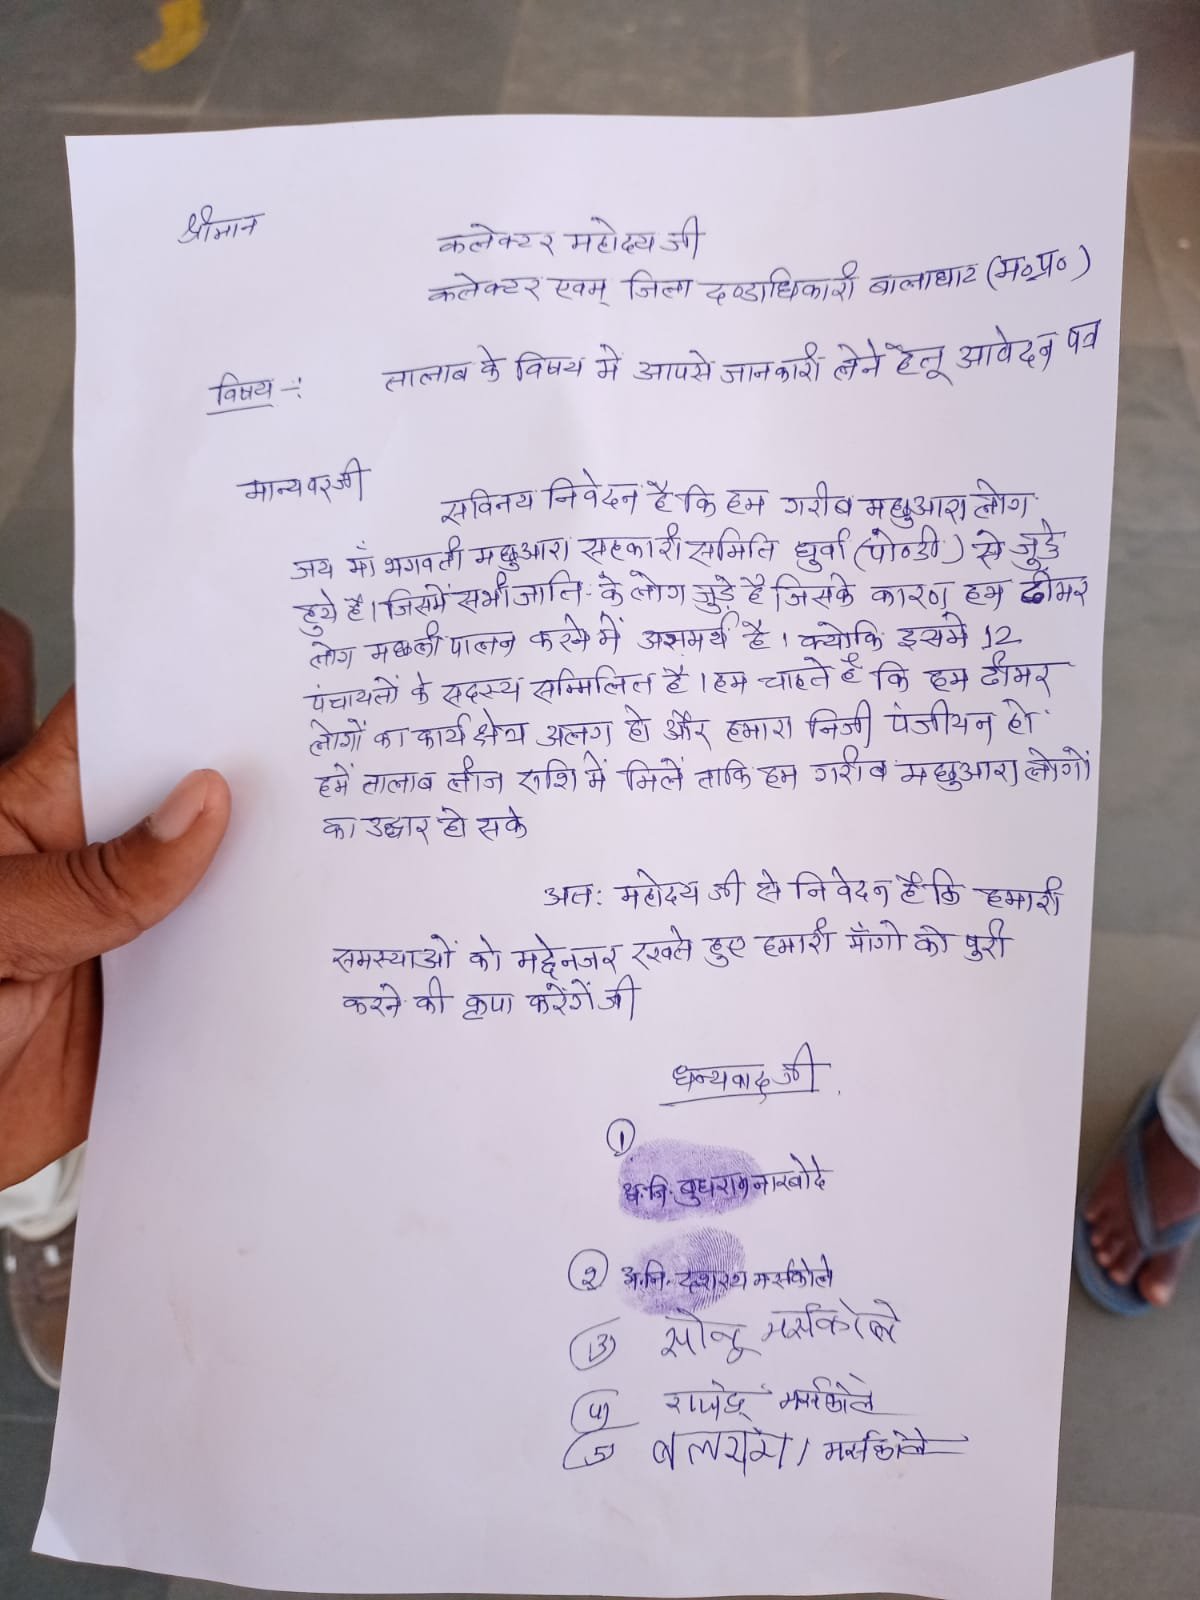 श्रीमान
कलेक्टर महोदय जी
कलेक्टर एवम् जिला दण्डाधिकारी बालाघाट (म०प्र०)
विषय -: तालाब के विषय मे आपसे जानकारी लेने हेतू आवेदन पत्र
मान्यवर जी
सविनय निवेदन है कि हम गरीब मछुआरा लोग
जय माँ भगवती मछुआरा सहकारी समिति धुर्वा (पो०डी०) से जुड़े
हुये है। जिसमें सभी जाति के लोग जुड़े है जिसके कारण हम ढीमर
लोग मछली पालन करने में अशमर्थ है। क्योकि इसमे 12
पंचायतों के सदस्य सम्मिलित है। हम चाहते है कि हम ढीमर
लोगों का कार्य क्षेत्र अलग हो और हमारा निजी पंजीयन हो
हमें तालाब लीज राशि में मिलें ताकि हम गरीब मछुआरा लोगों
का उद्धार हो सके
अतः महोदय जी से निवेदन है कि हमारी
समस्याओं को मद्देनजर रखते हुए हमारी माँगो को पुरी
करने की कृपा करेंगें जी
धन्यवाद जी
1
अ.नि. बुधराम
2 अ.नि. दशरथ मर्सकोले
3 सोनू मर्सकोले
4 मर्सकोले
5 मर्सकोले